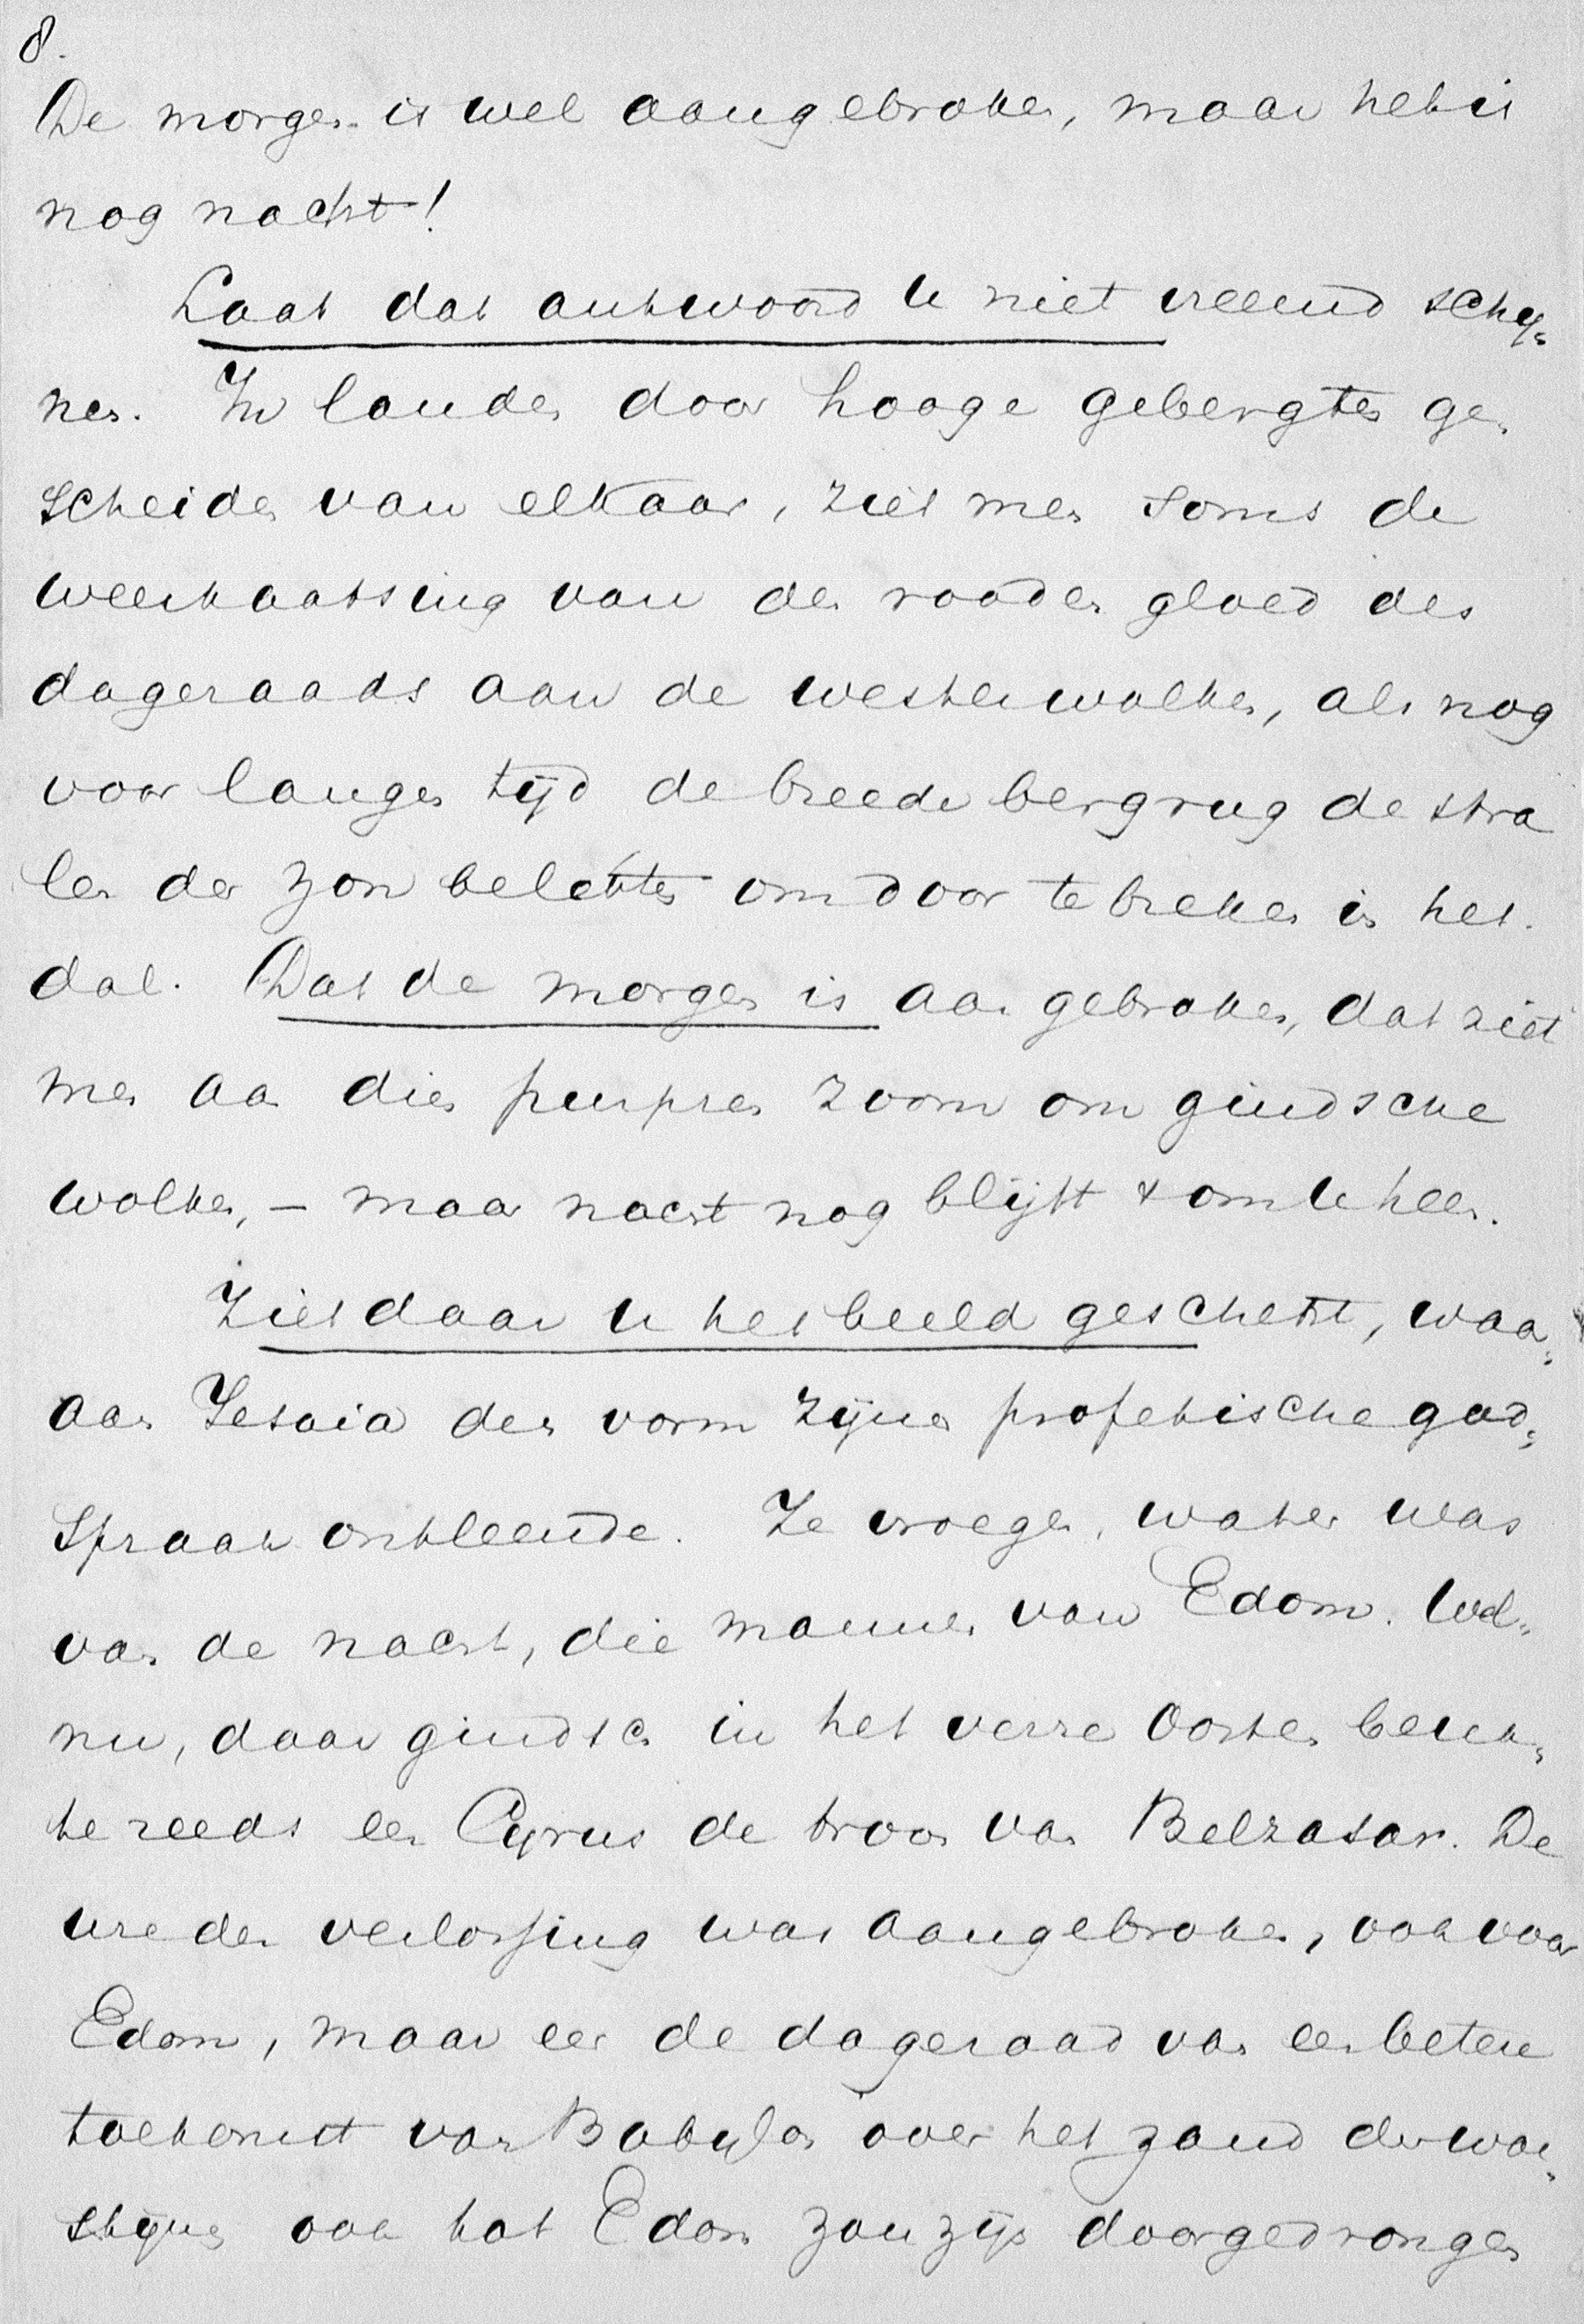 8.
De morgen is wel aangebroken, maar het is
nog nacht!
Laat dat antwoord U niet vreemd schy-
nen. In landen door hooge gebergten ge-
scheiden van elkaar, ziet men soms de
weerkaatsing van den rooden gloed des
dageraads aan de westerwolken, als nog
voor langen tijd de breede bergrug de stra
len der zon beletten om door te breken in het
dal. Dat de morgen is aangebroken, dat ziet
men aan dien purpren zoom om gindsche
wolken, – maar nacht nog blijft t om U heen.
Ziet daar U het beeld geschetst, waar-
aan Jesaia den vorm zijner profetische god-
spraak ontleende. Ze vroegen, wat er was
van de nacht, die mannen van Edom. Wel-
nu, daar gindsch in het verre Oosten beuk-
te reeds een Cyrus de troon van Belzasar. De
ure der verlossing was aangebroken, ook voor
Edom, maar eer de dageraad van een betere
toekomst van Babylon over het zand der woe-
stijne ook tot Edom zou zijn doorgedrongen